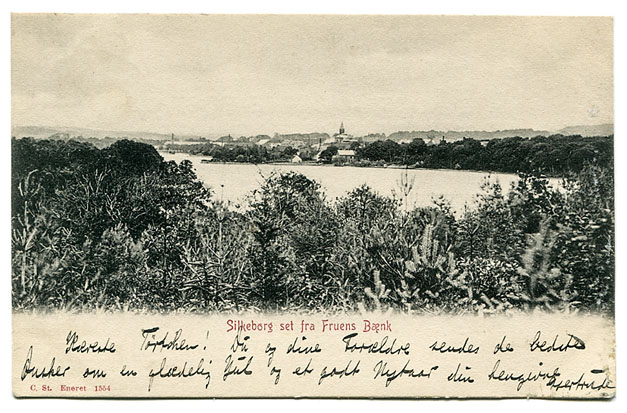 Silkeborg set fra Fruens Bænk
Kæreste Tordchen! Du og dine Forældre sendes de bedste
Ønsker om en glædelig Jul og et godt Nytaar din hengivne Gertrude
C. St. Eneret 1554